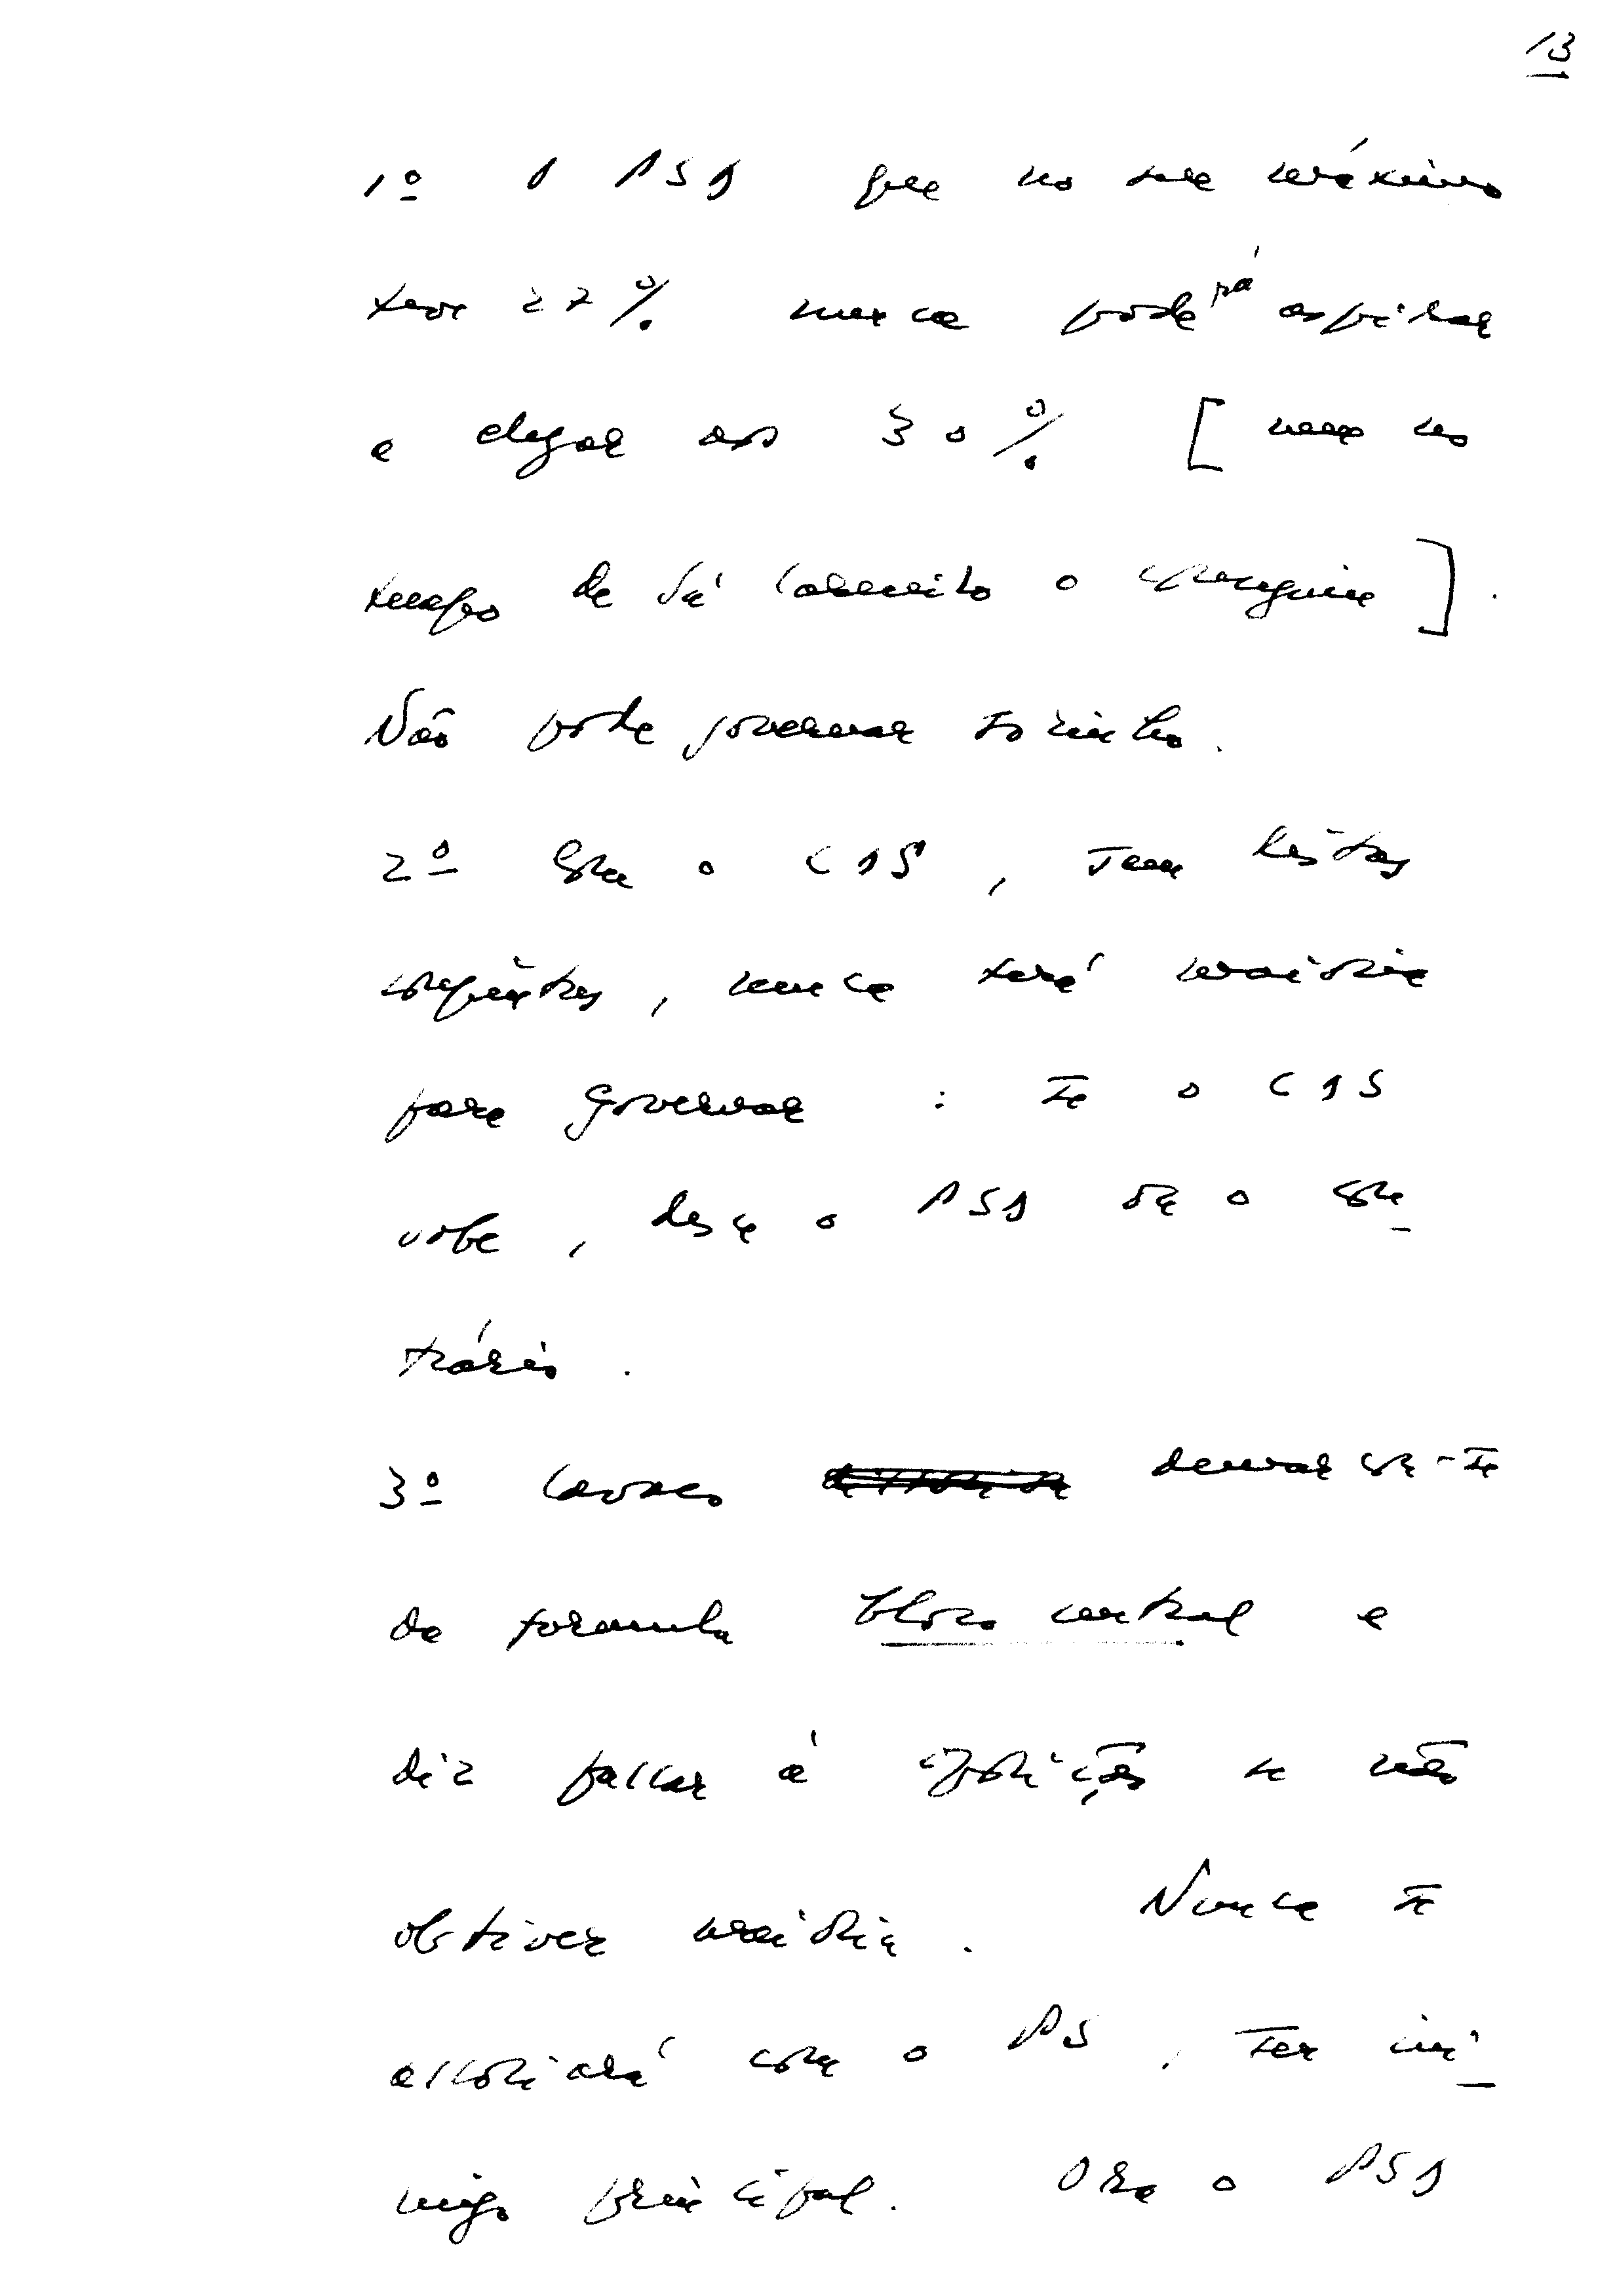 13
1º O PSD que no seu máximo
teve 27% nunca poderá aspirar
a chegar aos 30% [nem no
tempo de Sá Carneiro o conseguiu].
Não pode governar sozinho.
2º Com o CDS, sem listas
conjuntas, nunca terá maioria
para governar : se o CDS
sobe, desce o PSD ou o con
trário.
3º Cavaco demarcou-se
da formula bloco central e
diz passar à oposição se não
obtiver maioria. Nunca se
associará com o PS, seu ini
migo principal. Ora o PSD